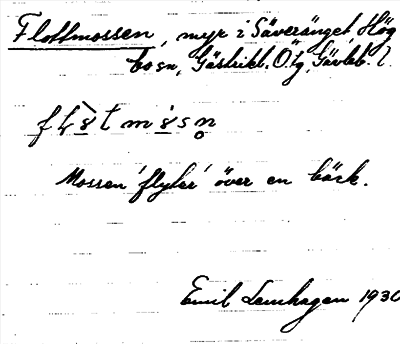 Flottmossen, myr i Säveränget, Hög
bosn, Gästrikl. Ö. tg, Gävleb. l.
Mossen 'flyter' över en bäck.
Emil Lamhagen 1930